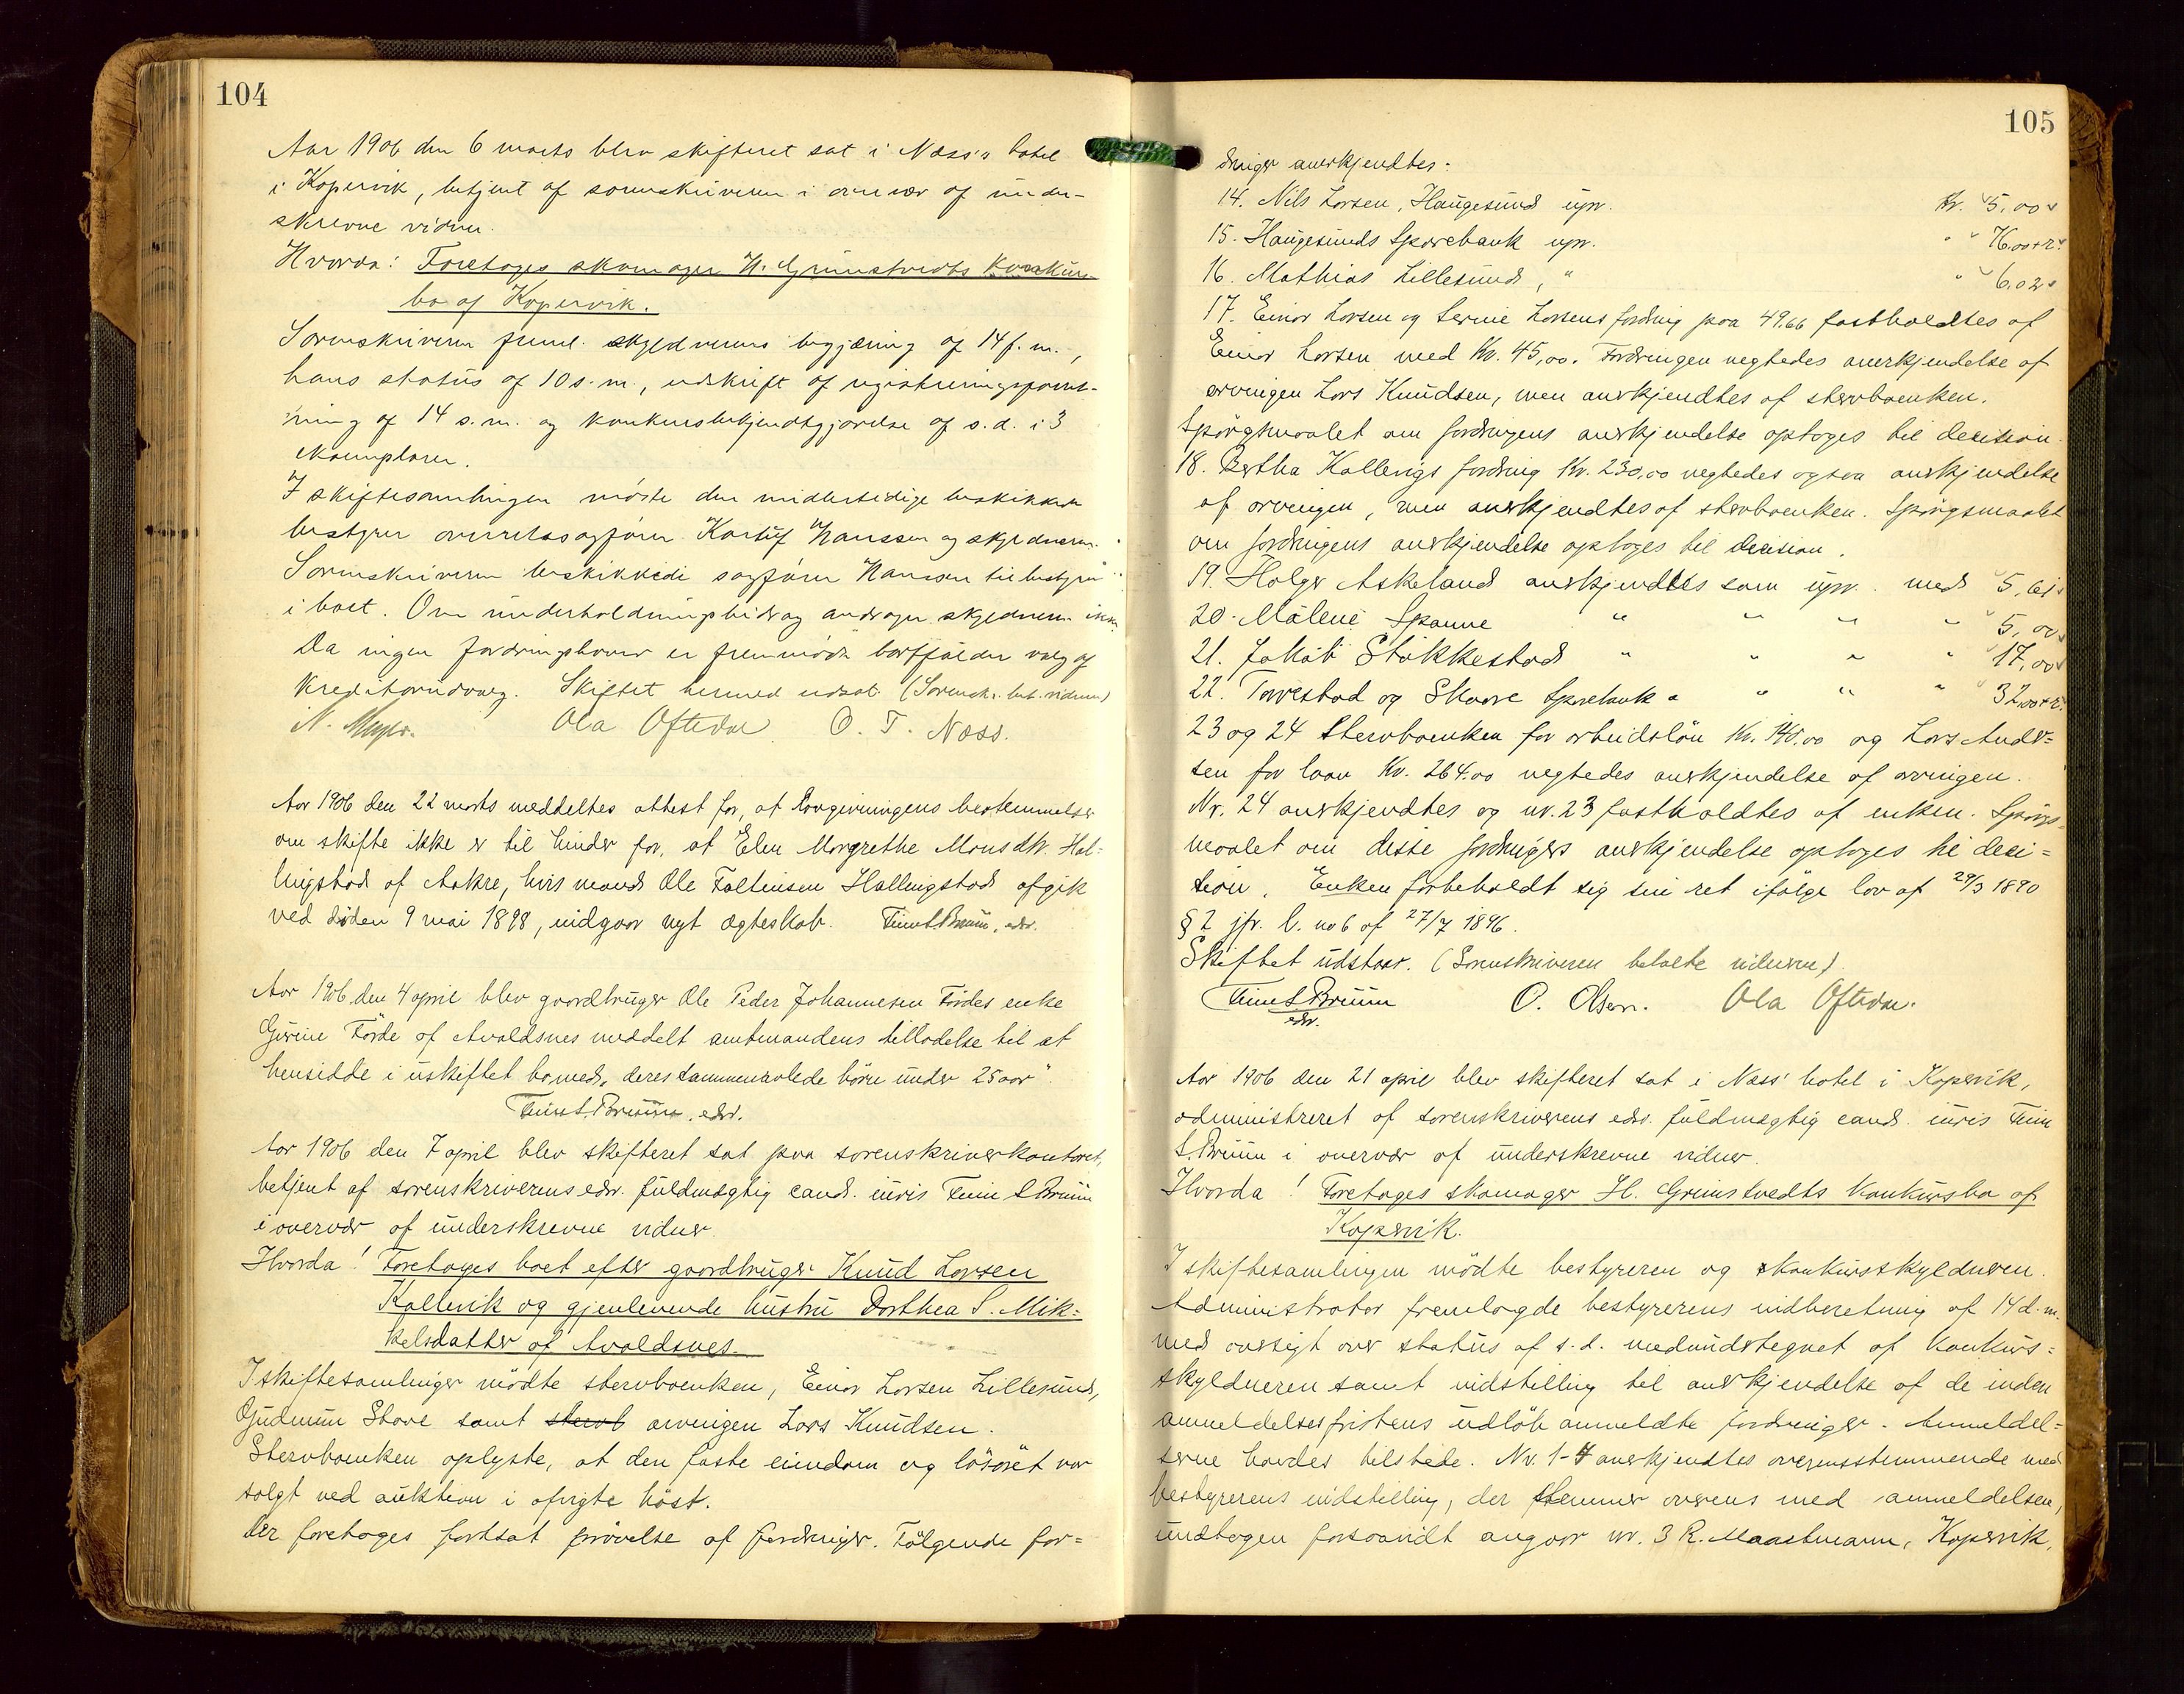 104
Aar 1906 den 6 marts blev skifteret sat i Næss's hotel
i Kopervik, betjent af sorenskriveren i overvær af under-
skrevne vidner.
Hvorda: Foretages skomager H. Grimstvedts konkurs-
bo af Kopervik.
Sorenskriveren freml. skyldnerens begjæring af 14 f. m.,
hans status af 10 s. m., udskrift af registreringsforret-
ning af 14 s. m. og konkursbekjendtgjørelse af s. d. i 3
exemplarer.
I skiftesamlingen mødte den midlertidige beskikkede
bestyrer overretssagfører Hanssen og skyldneren.
Sorenskriveren beskikkede sagfører Hanssen til bestyrer
i boet. Om underholdningsbidrag andrager skyldneren ikke.
Da ingen fordringshaver er fremmødt bortfalder valg af
kreditorudvalg. Skiftet hermed udsat. (Sorensk. bet. vidnerne)
N. Meyer. Ola Oftedal O. T. Næss.
Aar 1906 den 22 marts meddeltes attest for, at lovgivningens bestemmelser
om skifte ikke er til hinder for, at Elen Margrethe Monsdtr. Hal=
lingstad af Aakre, hvis mand Ole Faltinsen Hallingstad afgik
ved døden 9 mai 1898, indgaar nyt ægteskab. Finn S. Bruun, edsv.
Aar 1906 den 4 april blev gaardbruger Ole Peder Johannesen Førdes enke
Gurine Førde af Avaldsnes meddelt amtmandens tilladelse til at
hensidde i uskiftet bo med "deres sammenavlede børn under 25 aar"
Finn S. Bruun, edsv.
Aar 1906 den 7 april blev skifteret sat paa sorenskriverkontoret,
betjent af sorenskriverens edsv. fuldmægtig cand. iuris Finn S Bruun
i overvær af underskrevne vidner.
Hvorda! Foretages boet efter gaardbruger Knud Larsen
Kallevik og gjenlevende hustru Dorthea S. Mik=
kelsdatter af Avaldsnes.
I skiftesamlingen mødte stervboenken, Einar Larsen Lillesund,
Gudmun Stave samt stervb arvingen Lars Knudsen.
Stervboenken oplyste, at den faste eiendom og løsøret var
solgt ved auktion i afvigte høst.
Der foretages fortsat prøvelse af fordringer. Følgende for=
105
dringer anerkjendtes:
14. Nils Larsen, Haugesund upr. Kr. 5,00
15. Haugesunds Sparebank upr. " 76.00+r.
16. Mathias Lillesund, " " 6.02
17. Einar Larsen og Serine Larsens fordring paa 49.66 fastholdtes af
Einar Larsen med Kr. 45,00. Fordringen negtedes anerkjendelse af
arvingen Lars Knudsen, men anerkjendtes af stervboenken.
Spørgsmaalet om fordringens anerkjendelse optoges til decision.
18. Bertha Kallevigs fordring Kr. 230,00 negtedes ogsaa anerkjendelse
af arvingen, men anerkjendtes af stervboenken. Spørgsmaalet
om fordringens anerkjendelse optoges til decision.
19. Holger Askeland anerkjendtes som upr. med 5,61
20. Malene Spanne " " " " 5,00
21. Jakob Stakkestad " " " " 17,00
22. Torvestad og Skaare Sparebank " " " " 32,00+r.
23 og 24 Stervboenken for arbeidsløn Kr. 140.00 og Lars Ander=
sen for laan Kr. 264.00 negtedes anerkjendelse af arvingen.
Nr. 24 anerkjendtes og nr. 23 fastholdtes af enken. Spørgs=
maalet om disse fordringers anerkjendelse optoges til deci=
sion. Enken forbeholdt sig sin ret ifølge lov af 29/3 1890
§ 2 jfr. l. no 6 af 27/7 1896.
Skiftet udstaar. (Sorenskriveren betalte vidnerne)
Finn S. Bruun O. Olsen. Ola Oftedal.
edsv.
Aar 1906 den 21 april blev skifteret sat i Næss' hotel i Kopervik,
administreret af sorenskriverens edsv. fuldmægtig cand. iuris Finn
S. Bruun i overvær af underskrevne vidner.
Hvorda! Foretages skomager H. Grimstvedts konkursbo af
Kopervik.
I skiftesamlingen mødte bestyreren og konkursskyldneren.
Administrator fremlagde bestyrerens indberetning af 14 d. m.
med oversigt over status af s. d. medundertegnet af konkurs=
skyldneren samt indstilling til anerkjendelse af de inden
anmeldelsesfristens udløb anmeldte fordringer. Anmeldel=
serne havdes tilstede. Nr. 1-4 anerkjendtes overensstemmende med
bestyrerens indstilling, der stemmer overens med anmeldelsen,
undtagen forsaavidt angaar nr. 3 R. Maastmann, Kopervik,